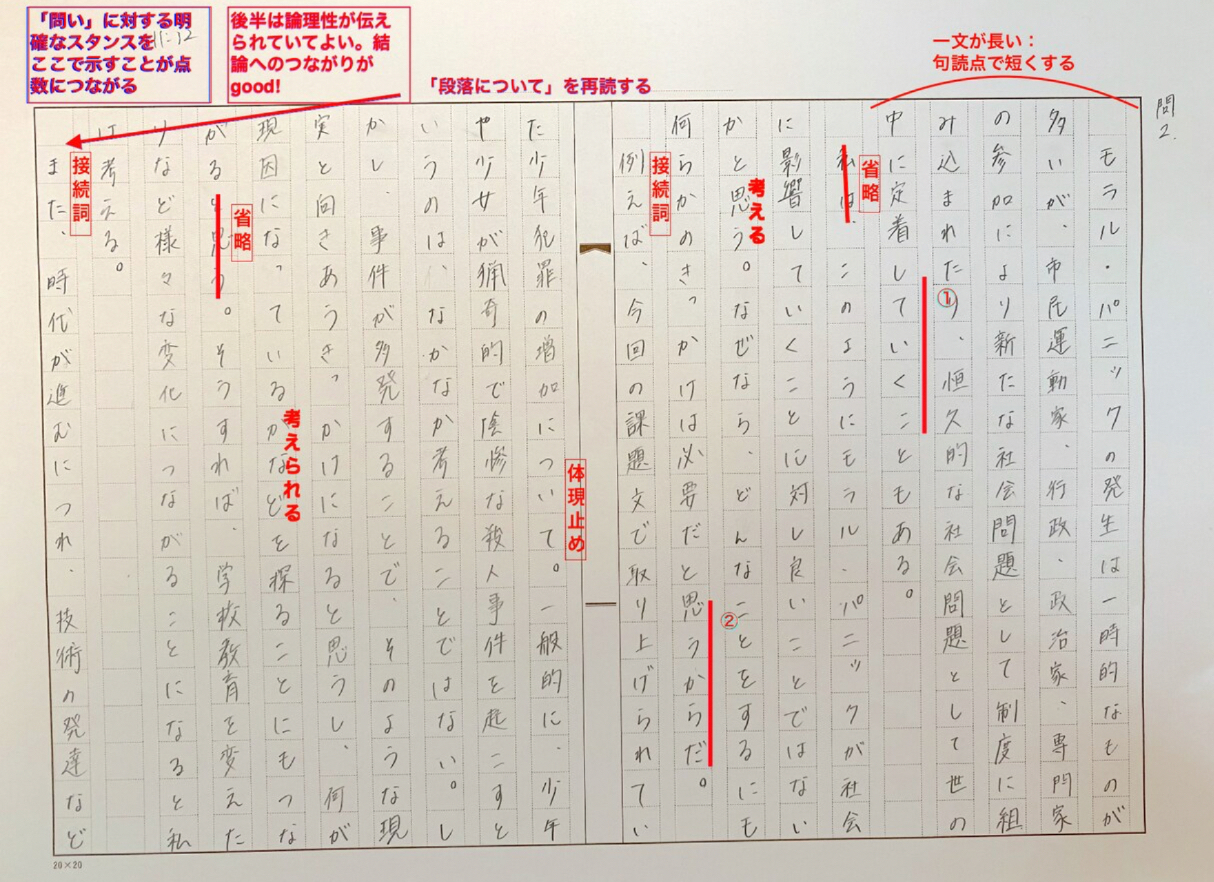 問2.
一文が長い：
句読点で短くする
モラル・パニックの発生は一時的なものが
多いが、市民運動家、行政、政治家、専門家
の参加により新たな社会問題として制度に組
み込まれたり、恒久的な社会問題として世の
①
中に定着していくこともある。
省略
私は、このようにモラル・パニックが社会
に影響していくことに対し良いことではない
考える
かと思う。なぜなら、どんなことをするにも
②
何らかのきっかけは必要だと思うからだ。
接続詞
例えば、今回の課題文で取り上げられてい
体現止め
た少年犯罪の増加について。一般的に、少年
や少女が猟奇的で陰惨な殺人事件を起こすと
いうのは、なかなか考えることではない。し
かし、事件が多発することで、そのような現
実と向きあうきっかけになると思うし、何が
考えられる
現因になっているかなどを探ることにもつな
省略
がると思う。そうすれば、学校教育を変えた
りなど様々な変化につながることになると私
は考える。
接続詞
また、時代が進むにつれ、技術の発達など
「段落について」を再読する
後半は論理性が伝え
られていてよい。結
論へのつながりが
good!
「問い」に対する明
確なスタンスを
ここで示すことが点
数につながる
11:12
20×20